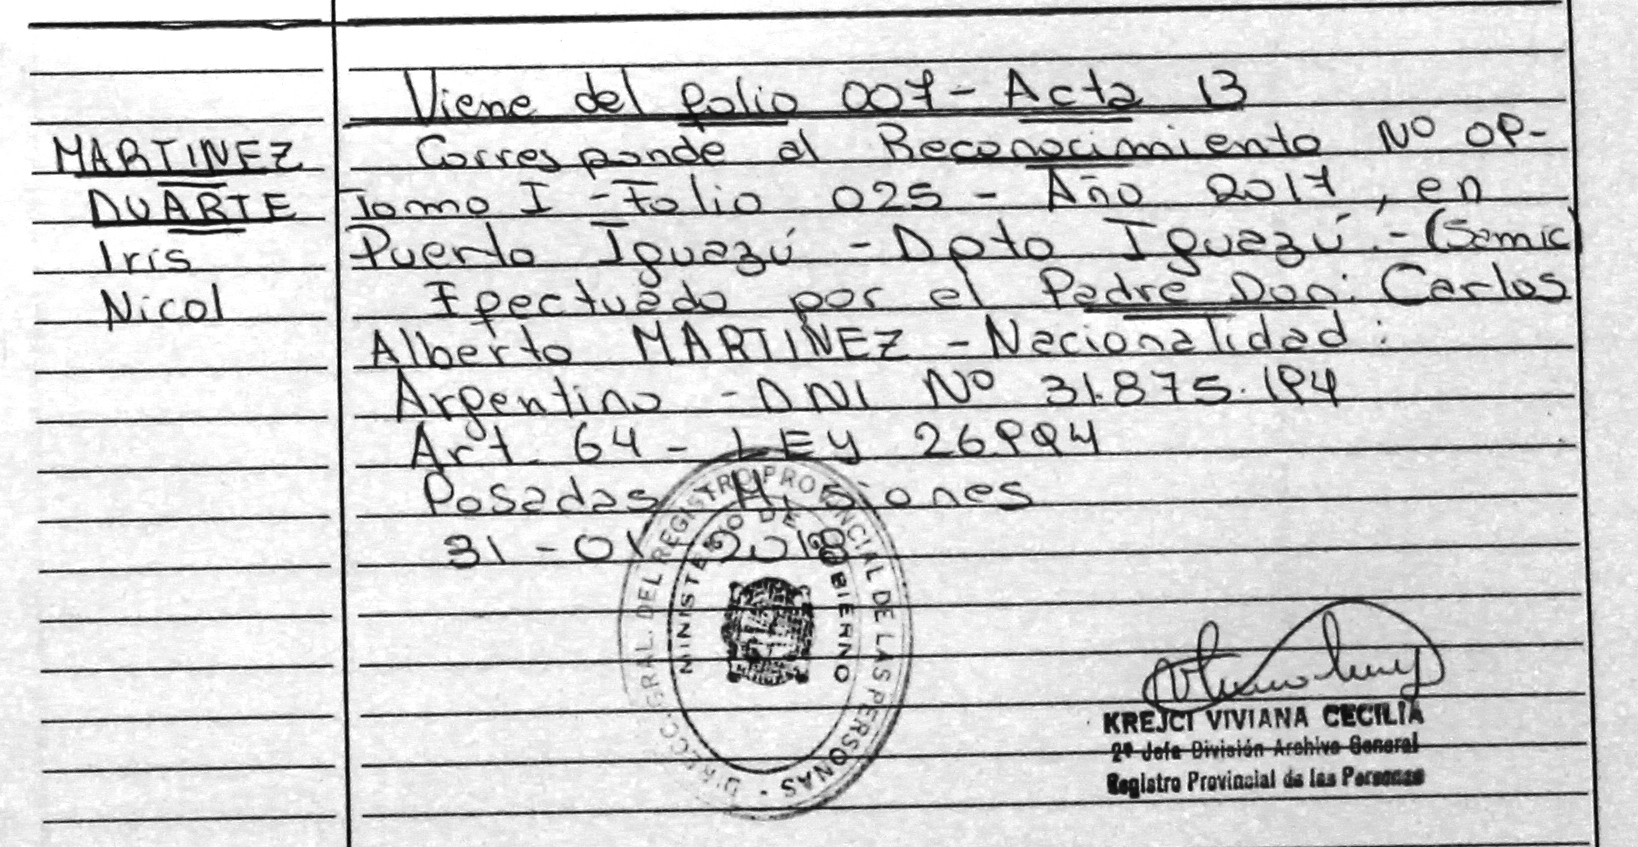 Viene del folio 007 - Acta 13
MARTINEZ
DUARTE
Iris
Nicol
Corresponde al Reconocimiento Nº 09-
Tomo I - Folio 025 - Año 2017, en
Puerto Iguazú - Dpto Iguazú.- (Samic)
Efectuado por el Padre Don: Carlos
Alberto MARTINEZ - Nacionalidad:
Argentino - DNI Nº 31.875.194
Art. 64 - LEY 26994
Posadas Misiones
31-01 2018
DIRECC. GRAL. DEL REGISTRO PROVINCIAL DE LAS PERSONAS -
MINISTERIO DE GOBIERNO
KREJCI VIVIANA CECILIA
2ª Jefa División Archivo General
Registro Provincial de las Personas